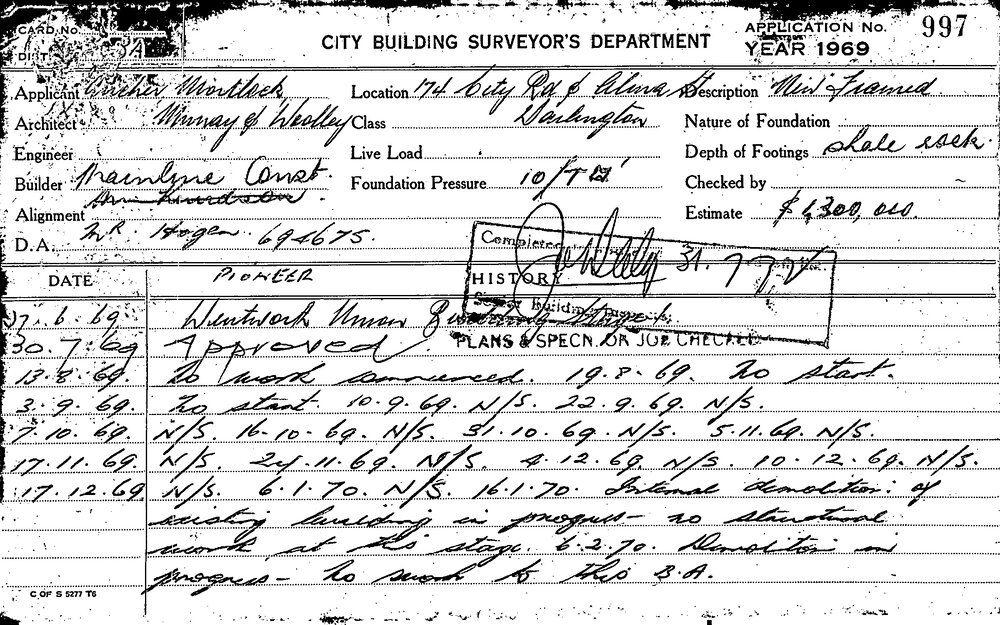 CARD No. CITY BUILDING SURVEYOR'S DEPARTMENT APPLICATION No. 997
DIST. 3A YEAR 1969
Applicant Archer Mortlock Location 174 City Rd & Alma St Description New Framed
Architect Murray & Woolley Class Darlington Nature of Foundation
Engineer Live Load Depth of Footings shale rock.
Builder Mainline Const. Foundation Pressure 10/T Checked by
Alignment Estimate $1,300,000.
D.A. Mr. Hogen 694675.
Completed 31.7.72
DATE PIONEER HISTORY
Senior Building
17.6.69. Wentworth Union
PLANS & SPECN. OR JOB CHECKED
30.7.69 Approved
13.8.69. No work commenced. 19.8.69. No start.
3.9.69. No start. 10.9.69. N/S. 22.9.69. N/S.
7.10.69. N/S. 16.10.69. N/S. 31.10.69. N/S. 5.11.69. N/S.
17.11.69. N/S. 24.11.69. N/S. 4.12.69. N/S. 10.12.69. N/S.
17.12.69 N/S. 6.1.70. N/S. 16.1.70. Internal demolition of
existing building in progress - no structural
work at this stage. 6.2.70. Demolition in
progress - No work to this B.A.
C OF S 5277 T6